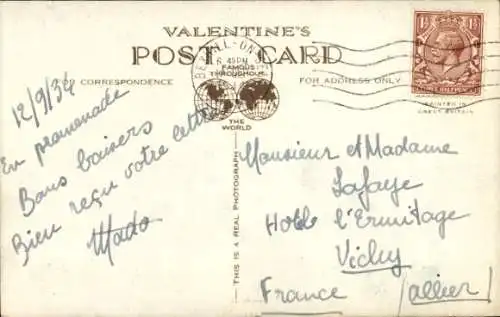 VALENTINE'S
POST CARD
FAMOUS
THROUGHOUT
THE
WORLD
CORRESPONDENCE
FOR ADDRESS ONLY
BEXHILL-ON-
6 45 PM
PRINTED IN
GREAT BRITAIN
THIS IS A REAL PHOTOGRAPH
12/9/34
En promenade
Bons baisers
Bien reçu votre lettre
Mado
Monsieur et Madame
Lafaye
Hotel l'Ermitage
Vichy
France (Allier)